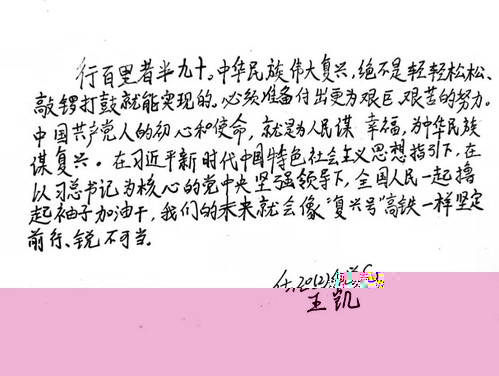 行百里者半九十。中华民族伟大复兴,绝不是轻轻松松、
敲锣打鼓就能实现的。必须准备付出更为艰巨、艰苦的努力。
中国共产党人的初心和使命,就是为人民谋幸福,为中华民族
谋复兴。在习近平新时代中国特色社会主义思想指引下,在
以习总书记为核心的党中央坚强领导下,全国人民一起撸
起袖子加油干,我们的未来就会像“复兴号”高铁一样坚定
前行、锐不可当。
王凯